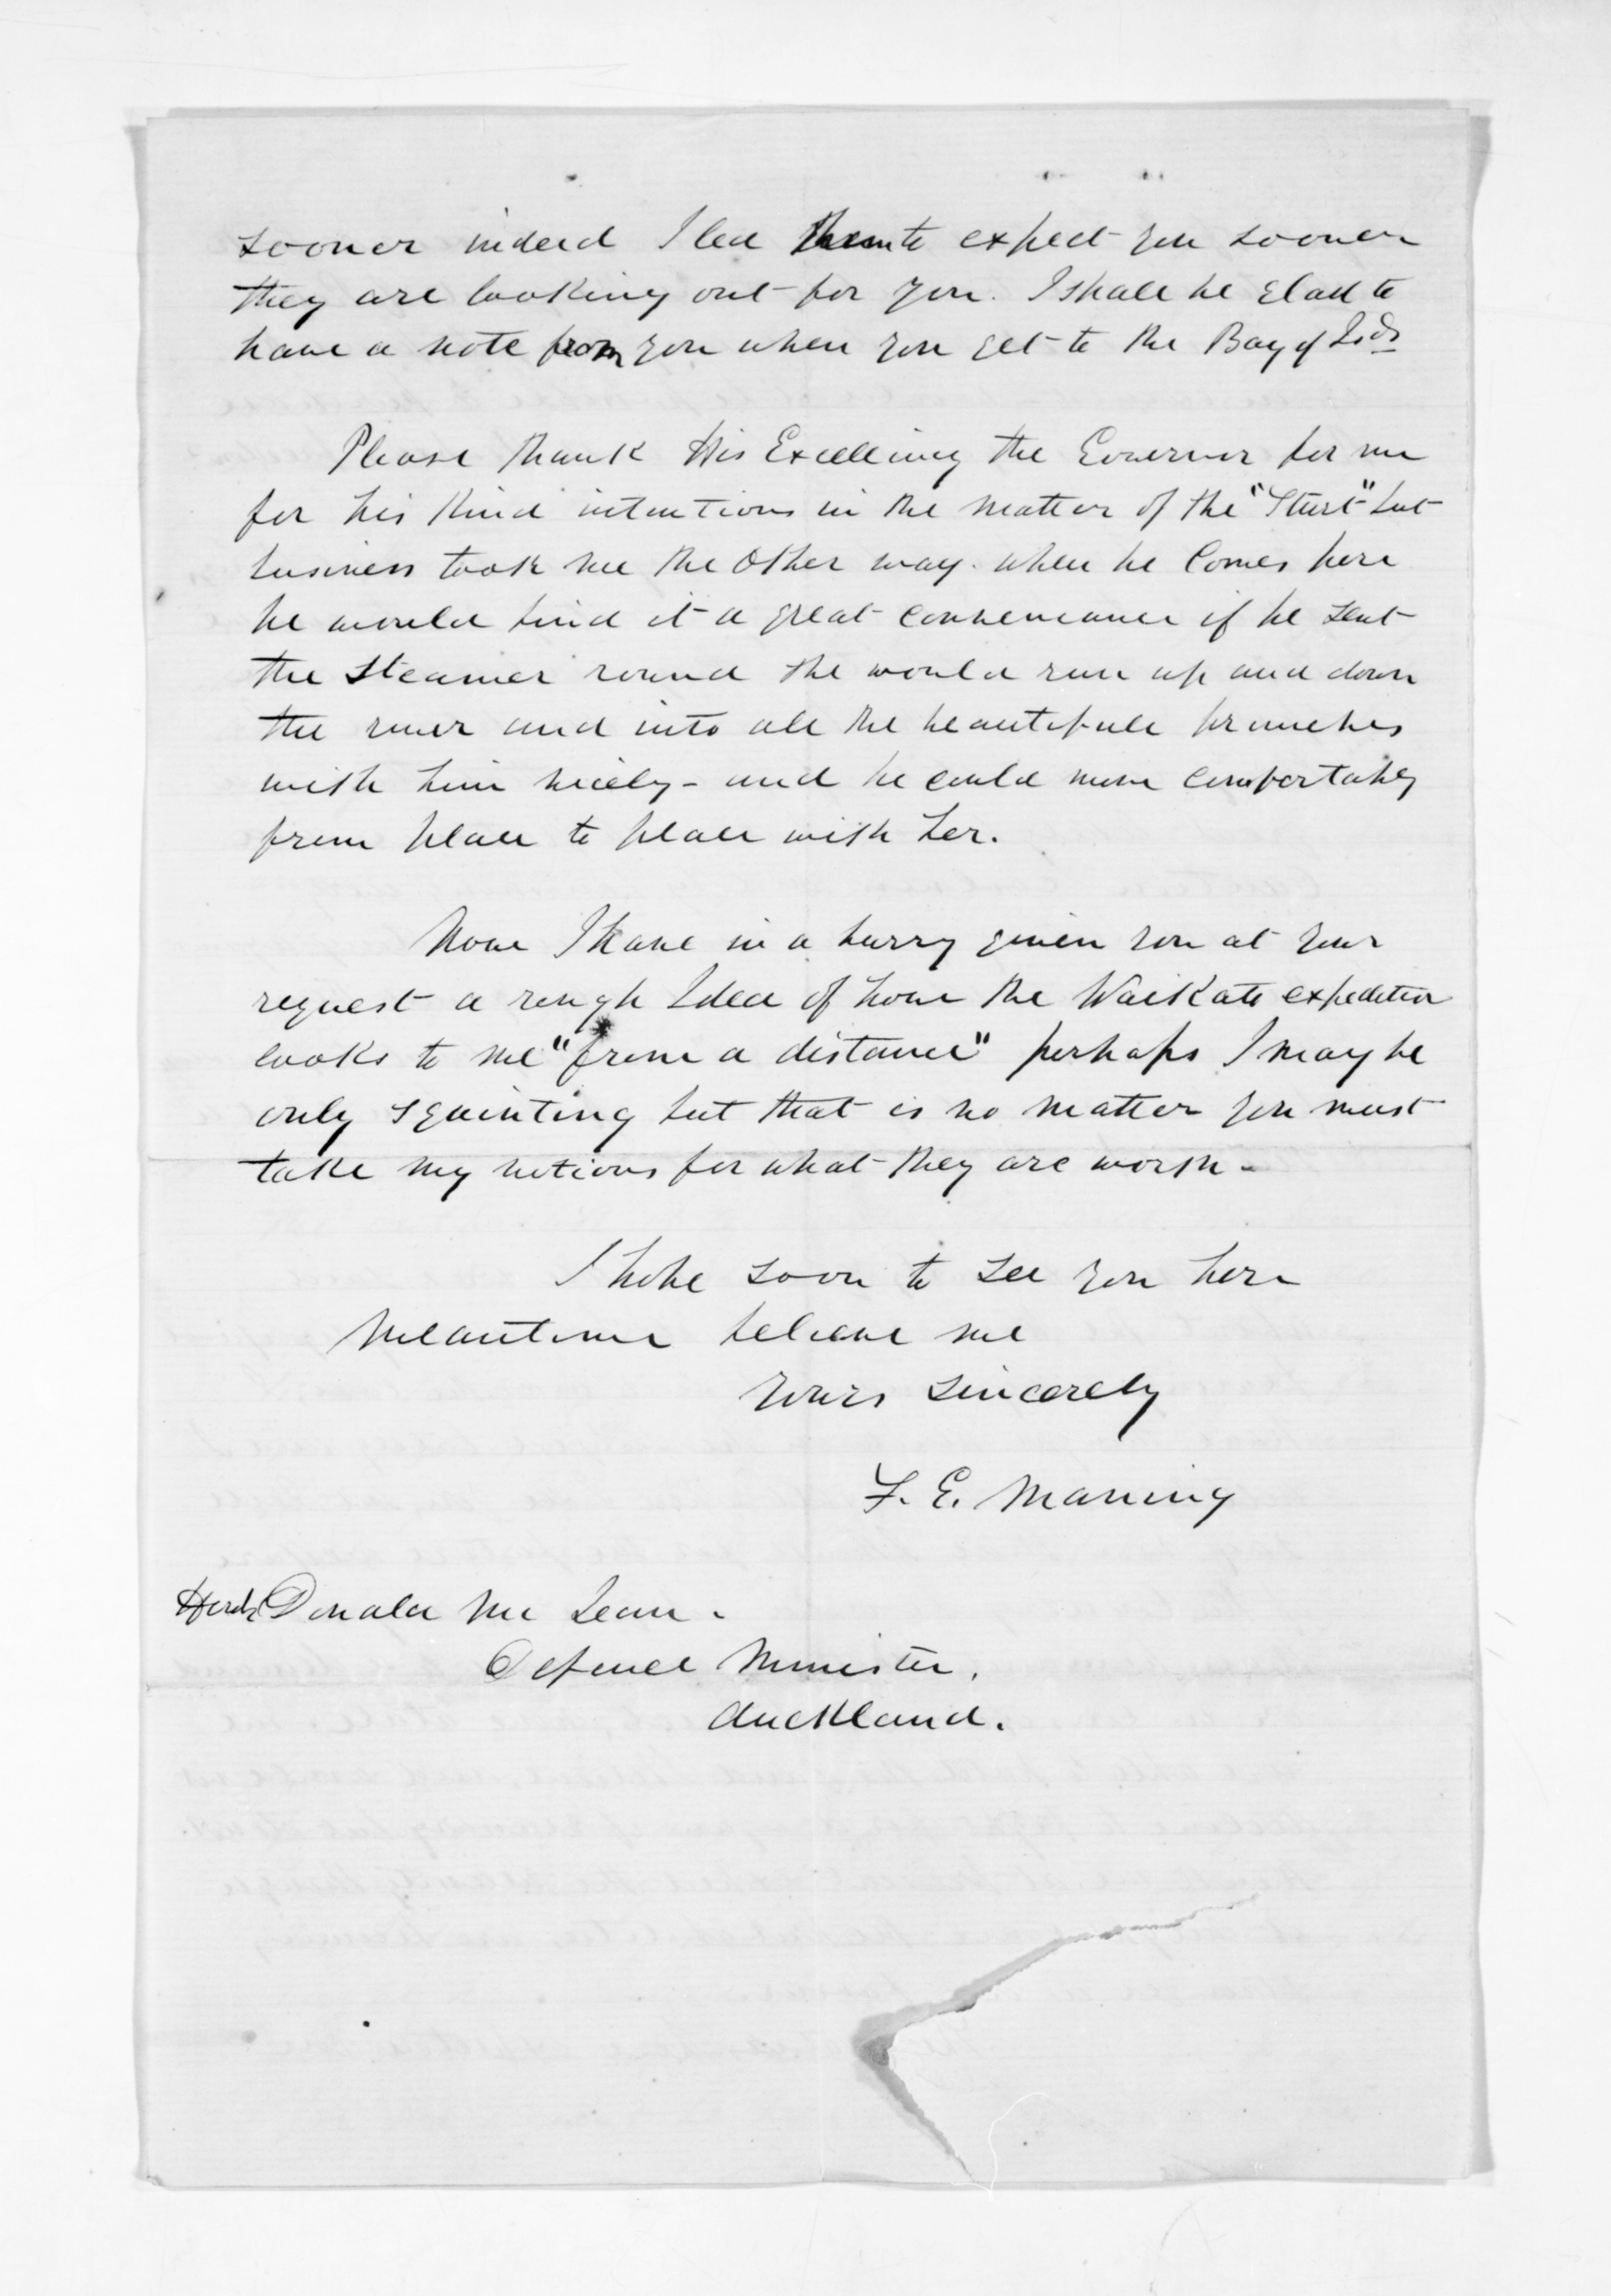 sooner indeed I led them to expect you sooner
they are looking out for you. I shall be glad to
have a note from you when you get to the Bay of Isds
Please thank His Excellency the Governor for me
for his kind intentions in the matter of the "Sturt" but
business took me the other way. when he Comes here
he would find it a great convenience if he sent
the Steamer round she would run up and down
the river and into all the beautifull branches
with him nicely - and he could move comfortably
from place to place with her.
Now I have in a hurry given you at your
request a rough Idea of how the Waikato expedition
looks to me "from a distance" perhaps I may be
only squinting but that is no matter you must
take my notions for what they are worth -
I hope soon to see you here
Meantime believe me
Yours sincerely
F. E. Maning
Honble Donald Mc Lean.
Defence Minister.
Auckland.